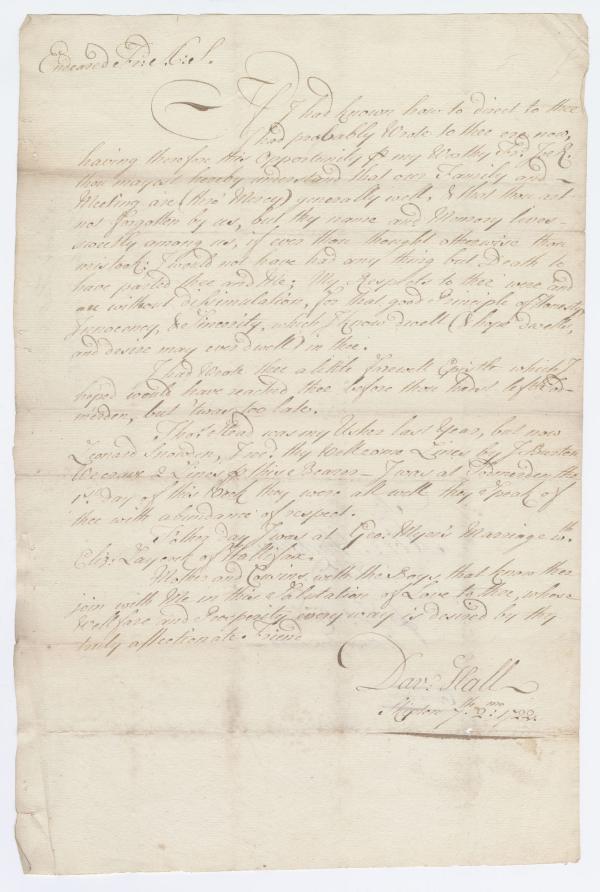 Endeared Friend.
If I had known how to direct to thee
I had probably Wrote to thee ere now,
having therefore this Opportunity by my Worthy Frd.
thou mayest hereby understand that our Family and
Meeting are (thro' Mercy) generally well, & that thou art
not forgotten by us, but thy name and Memory lives
sweetly among us, if ever thou thought otherwise thou
mistook; I would not have had any thing but Death to
have parted thee and Me; My Respects to thee were and
are without dissimulation, for that good Principle of Honesty
Innocency, & Sincerity, which I know dwell (& hope dwells,
and desire may ever dwell) in thee.
I had Wrote thee a little farewell Epistle which I
hoped would have reached thee before thou hadst left
but 'twas too late.
Thos. Head was my Usher last Year, but now
Leonard Snowden, I rec'd. thy Wellcome Lines by J. Burton
2 Lines by this Bearer - I was at Todmerden the
1st. day of this Week they were all well they Speak of
thee with abundance of respect.
day I was at Geo: Myers's Marriage wth.
Eliz: Laycock of Hallifax.
Mother and Cousins with the Boys, that know thee
join with Me in this Salutation of Love to thee, whose
Wellfare and Prosperity every way is desired by thy
truly affectionate Friend
Dav: Hall
Skipton 2mo.